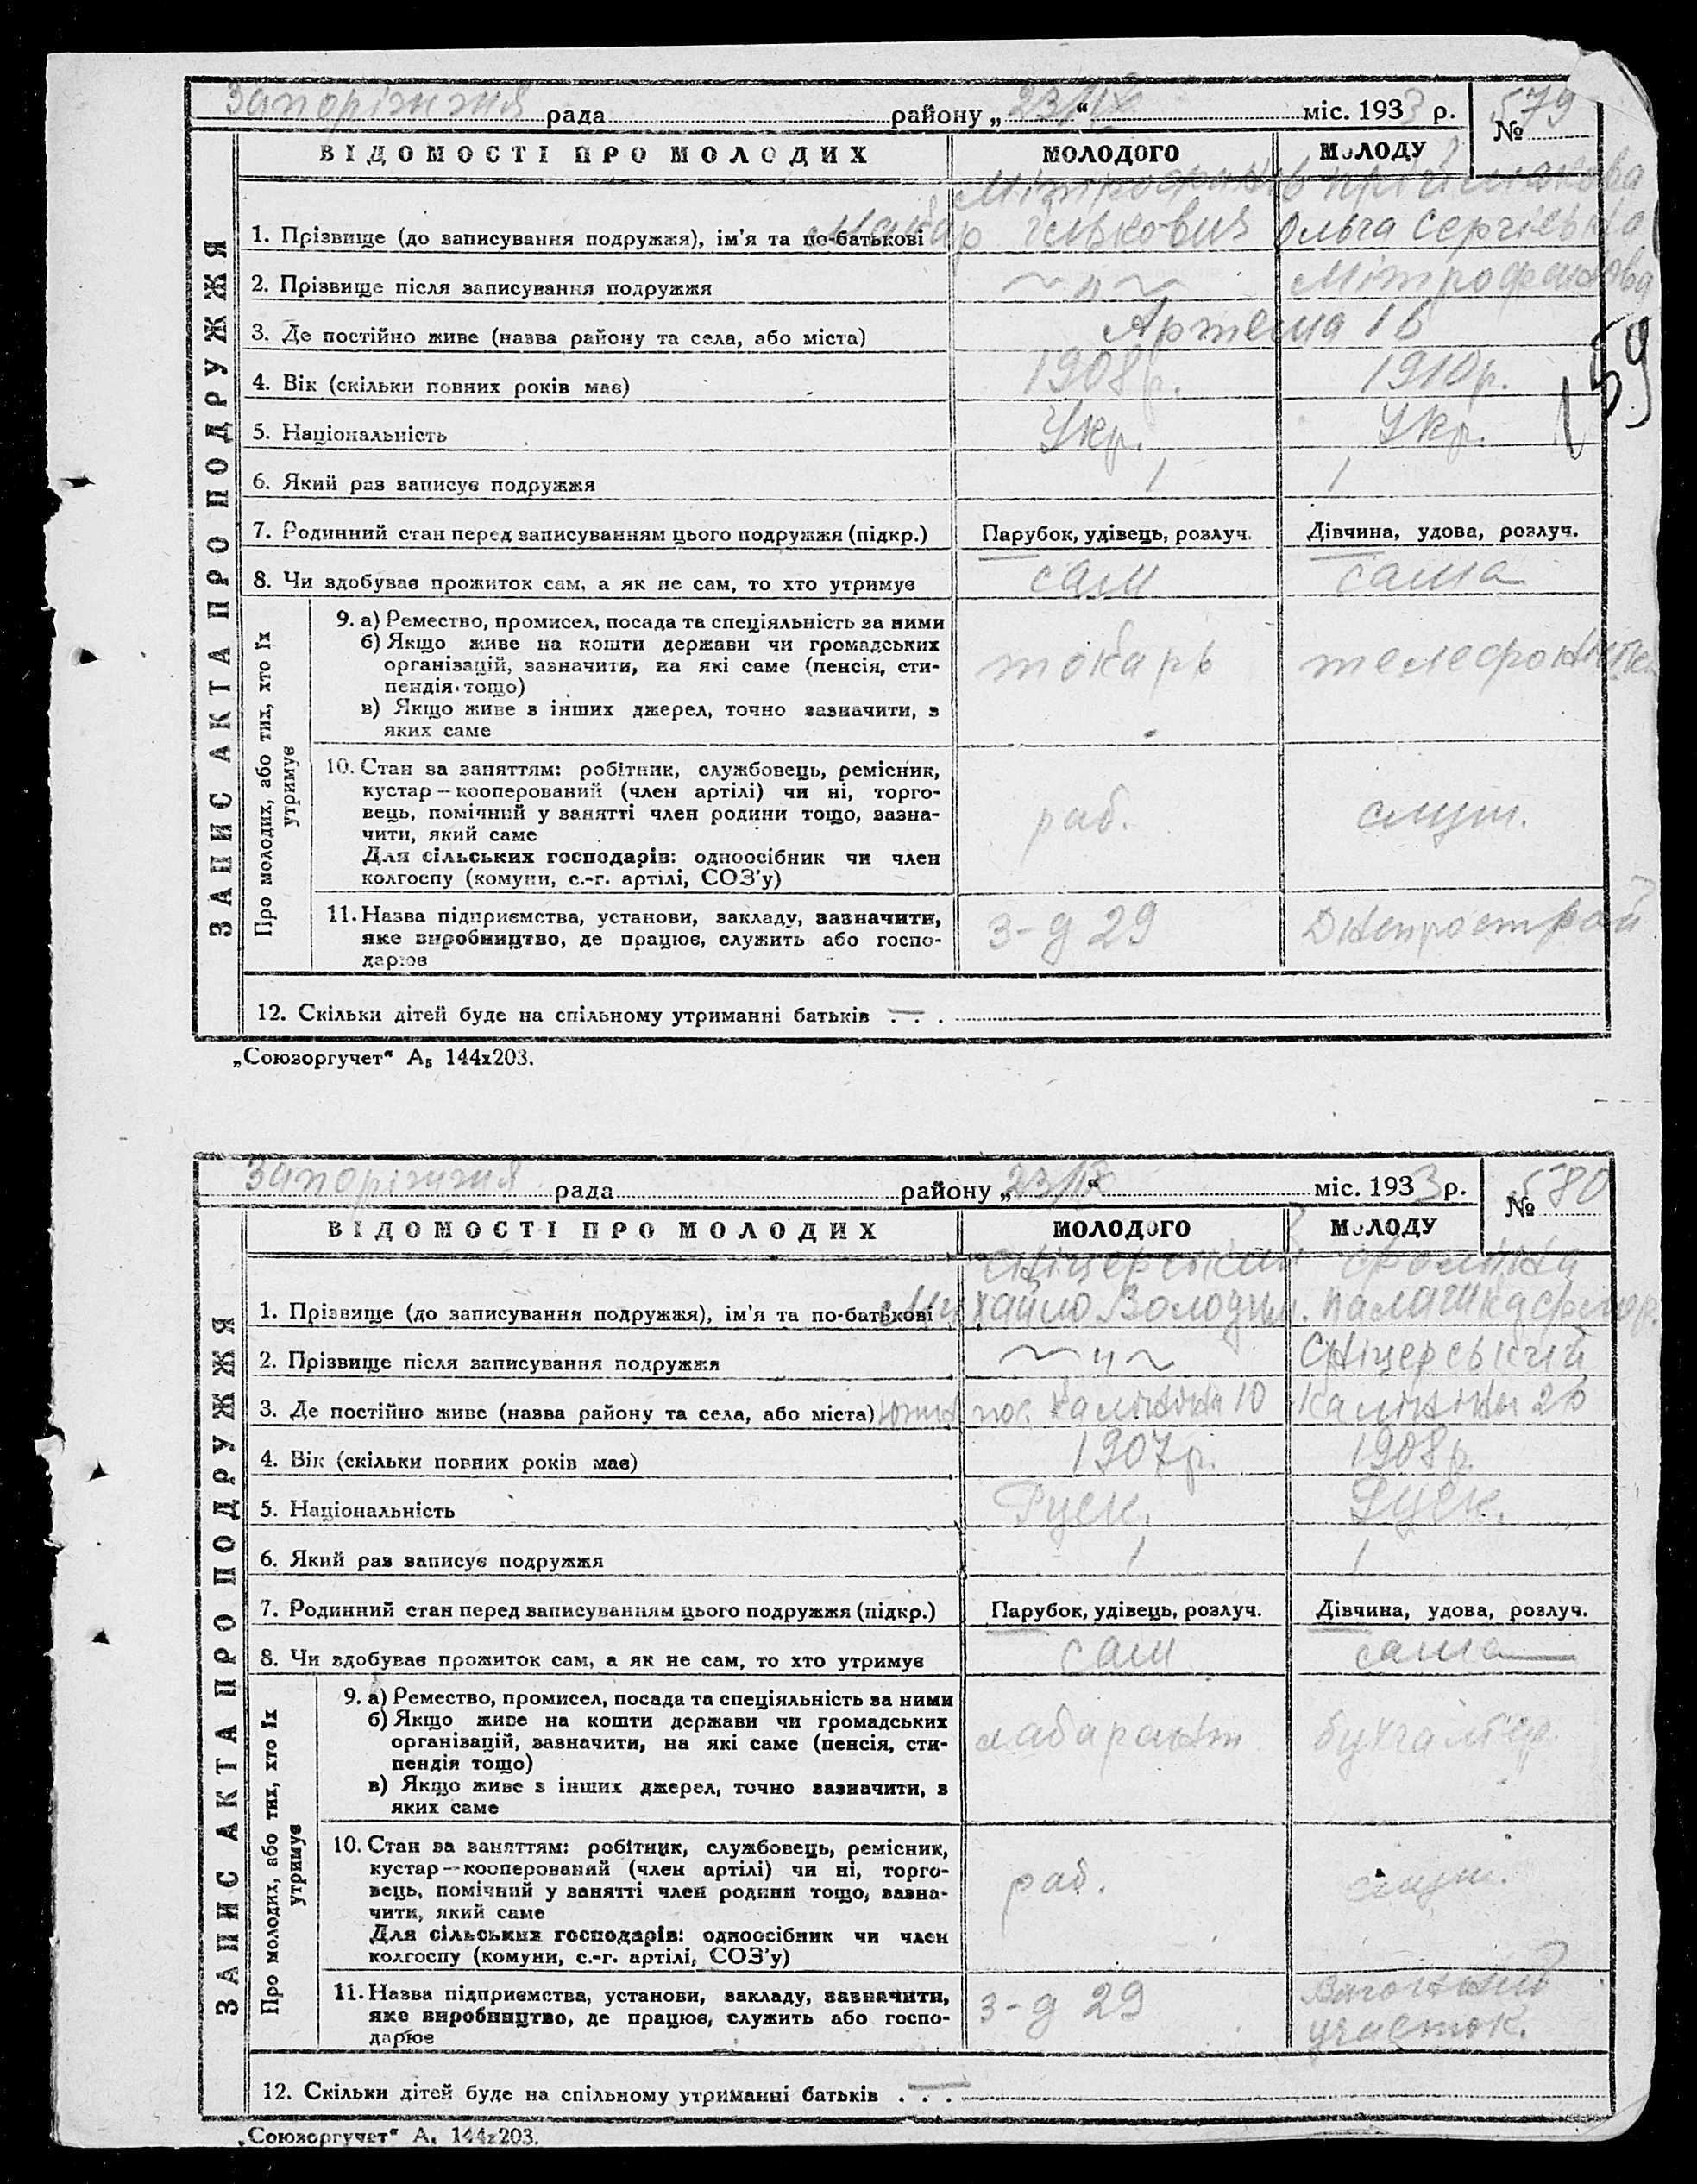 Запоріжжя рада району „23/IX“ міс. 1933 р. № 579
ВІДОМОСТІ ПРО МОЛОДИХ МОЛОДОГО МОЛОДУ
ЗАПИС АКТА ПРО ПОДРУЖЖЯ
Мітрофанів Приймакова
1. Прізвище (до записування подружжя), ім'я та по-батькові Макар Ількович Ольга Сергіївна
2. Прізвище після записування подружжя ~ „ ~ Мітрофанова
3. Де постійно живе (назва району та села, або міста) Артема 16
4. Вік (скільки повних років має) 1908 р. 1910 р.
159
5. Національність Укр. Укр.
6. Який раз записує подружжя 1 1
7. Родинний стан перед записуванням цього подружжя (підкр.) Парубок, удівець, розлуч. Дівчина, удова, розлуч.
8. Чи здобуває прожиток сам, а як не сам, то хто утримує сам сама
Про молодих, або тих, хто їх утримує
9. а) Ремество, промисел, посада та спеціяльність за ними
б) Якщо живе на кошти держави чи громадських
організацій, зазначити, на які саме (пенсія, сти-
пендія тощо)
в) Якщо живе з інших джерел, точно зазначити, з
яких саме
токарь
10. Стан за заняттям: робітник, службовець, ремісник,
кустар—кооперований (член артілі) чи ні, торго-
вець, помічний у занятті член родини тощо, зазна-
чити, який саме
Для сільських господарів: одноосібник чи член
колгоспу (комуни, с.-г. артілі, СОЗ'у)
раб. служ.
11. Назва підприємства, установи, закладу, зазначити,
яке виробництво, де працює, служить або госпо-
дарює
з-д 29 Днепрострой
12. Скільки дітей буде на спільному утриманні батьків . — .
„Союзоргучет“ А₅ 144х203.
Запоріжжя рада району „23/IX“ міс. 1933 р. № 580
ВІДОМОСТІ ПРО МОЛОДИХ МОЛОДОГО МОЛОДУ
ЗАПИС АКТА ПРО ПОДРУЖЖЯ
Сніцерський Фоміна
1. Прізвище (до записування подружжя), ім'я та по-батькові Михайло Володим. Палашка
2. Прізвище після записування подружжя ~ „ ~ Сніцерський
3. Де постійно живе (назва району та села, або міста) пос. Калініна 10 Калініна 26
4. Вік (скільки повних років має) 1907 р. 1908 р.
5. Національність Руск. Руск.
6. Який раз записує подружжя 1 1
7. Родинний стан перед записуванням цього подружжя (підкр.) Парубок, удівець, розлуч. Дівчина, удова, розлуч.
8. Чи здобуває прожиток сам, а як не сам, то хто утримує сам сама
Про молодих, або тих, хто їх утримує
9. а) Ремество, промисел, посада та спеціяльність за ними
б) Якщо живе на кошти держави чи громадських
організацій, зазначити, на які саме (пенсія, сти-
пендія тощо)
в) Якщо живе з інших джерел, точно зазначити, з
яких саме
лаборант бухгалтер
10. Стан за заняттям: робітник, службовець, ремісник,
кустар—кооперований (член артілі) чи ні, торго-
вець, помічний у занятті член родини тощо, зазна-
чити, який саме
Для сільських господарів: одноосібник чи член
колгоспу (комуни, с.-г. артілі, СОЗ'у)
раб. служ.
11. Назва підприємства, установи, закладу, зазначити,
яке виробництво, де працює, служить або госпо-
дарює
з-д 29 Вагонний
участок.
12. Скільки дітей буде на спільному утриманні батьків . — .
„Союзоргучет“ А₅ 144х203.